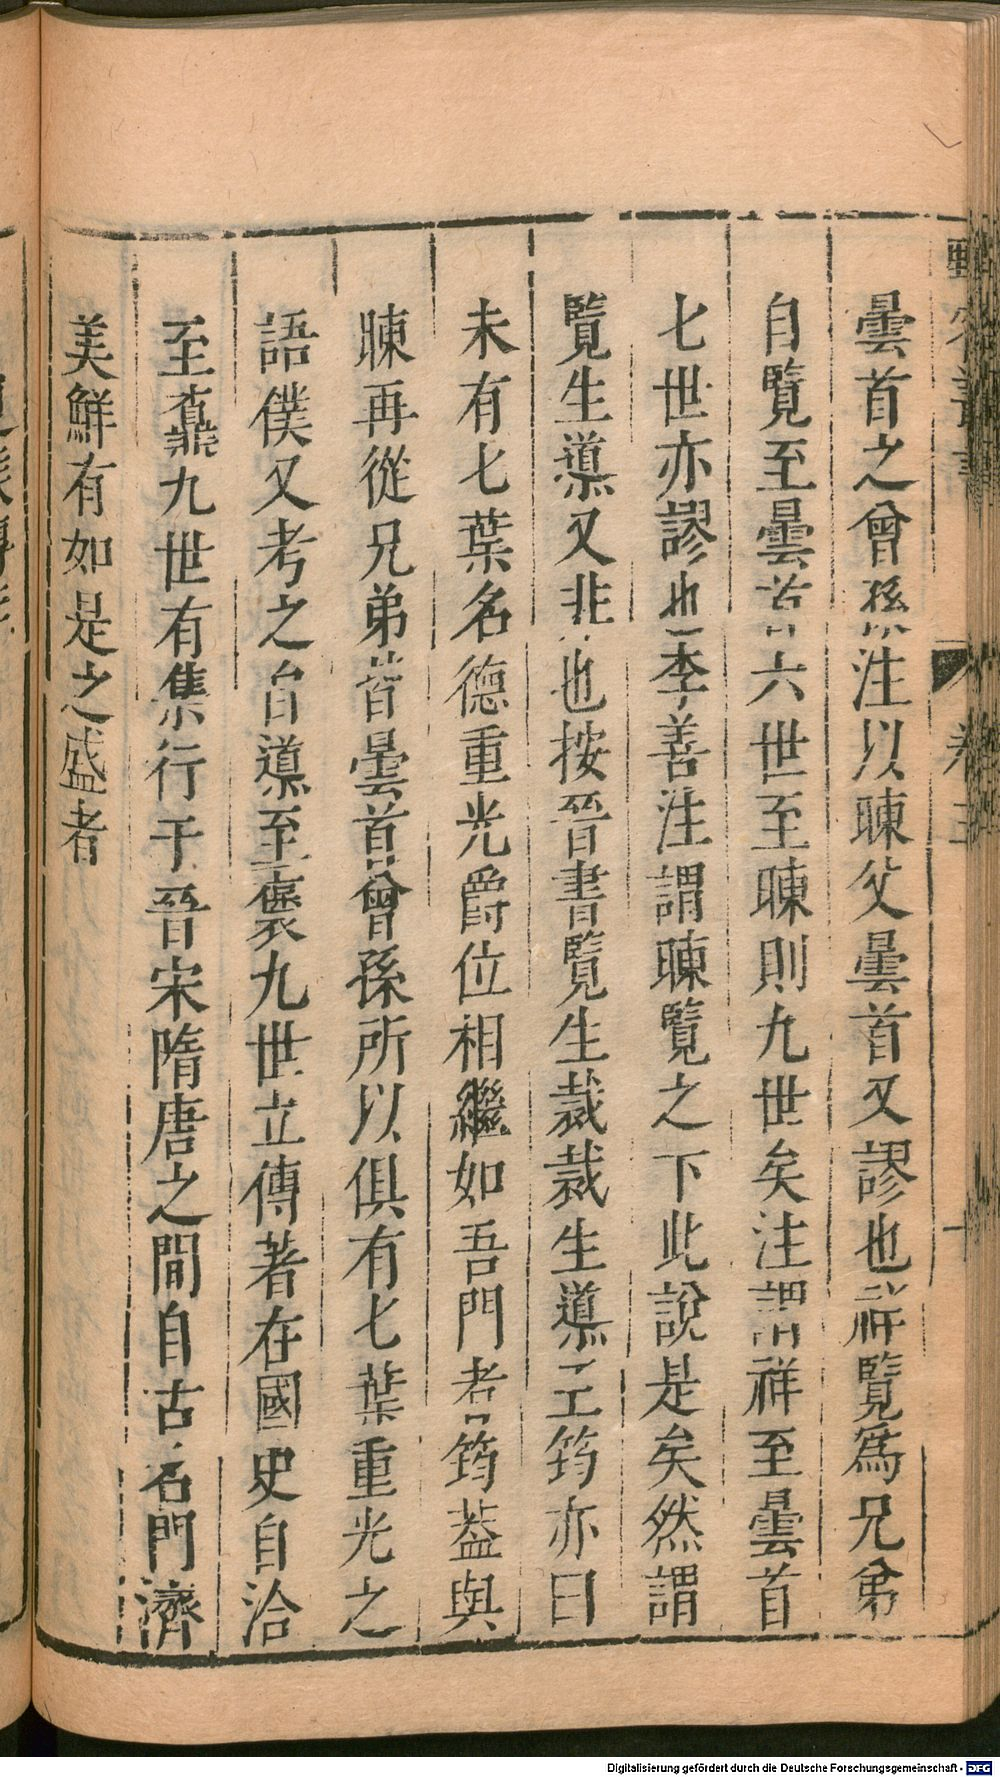 曇首之曾孫注以暕父曇首又謬也祥覽爲兄弟
自覽至曇首六世至暕則九世矣注謂祥至曇首
七世亦謬也李善注謂暕覽之下此說是矣然謂
覽生導又非也按晉書覽生裁裁生導王筠亦曰
未有七葉名德重光爵位相繼如吾門者筠葢與
暕再從兄弟皆曇首曾孫所以俱有七葉重光之
語僕又考之自導至褒九世立傳著在國史自洽
至鼒九世有集行于晉宋隋唐之間自古名門濟
美鮮有如是之盛者
卷
Digitalisierung gefördert durch die Deutsche Forschungsgemeinschaft - DFG